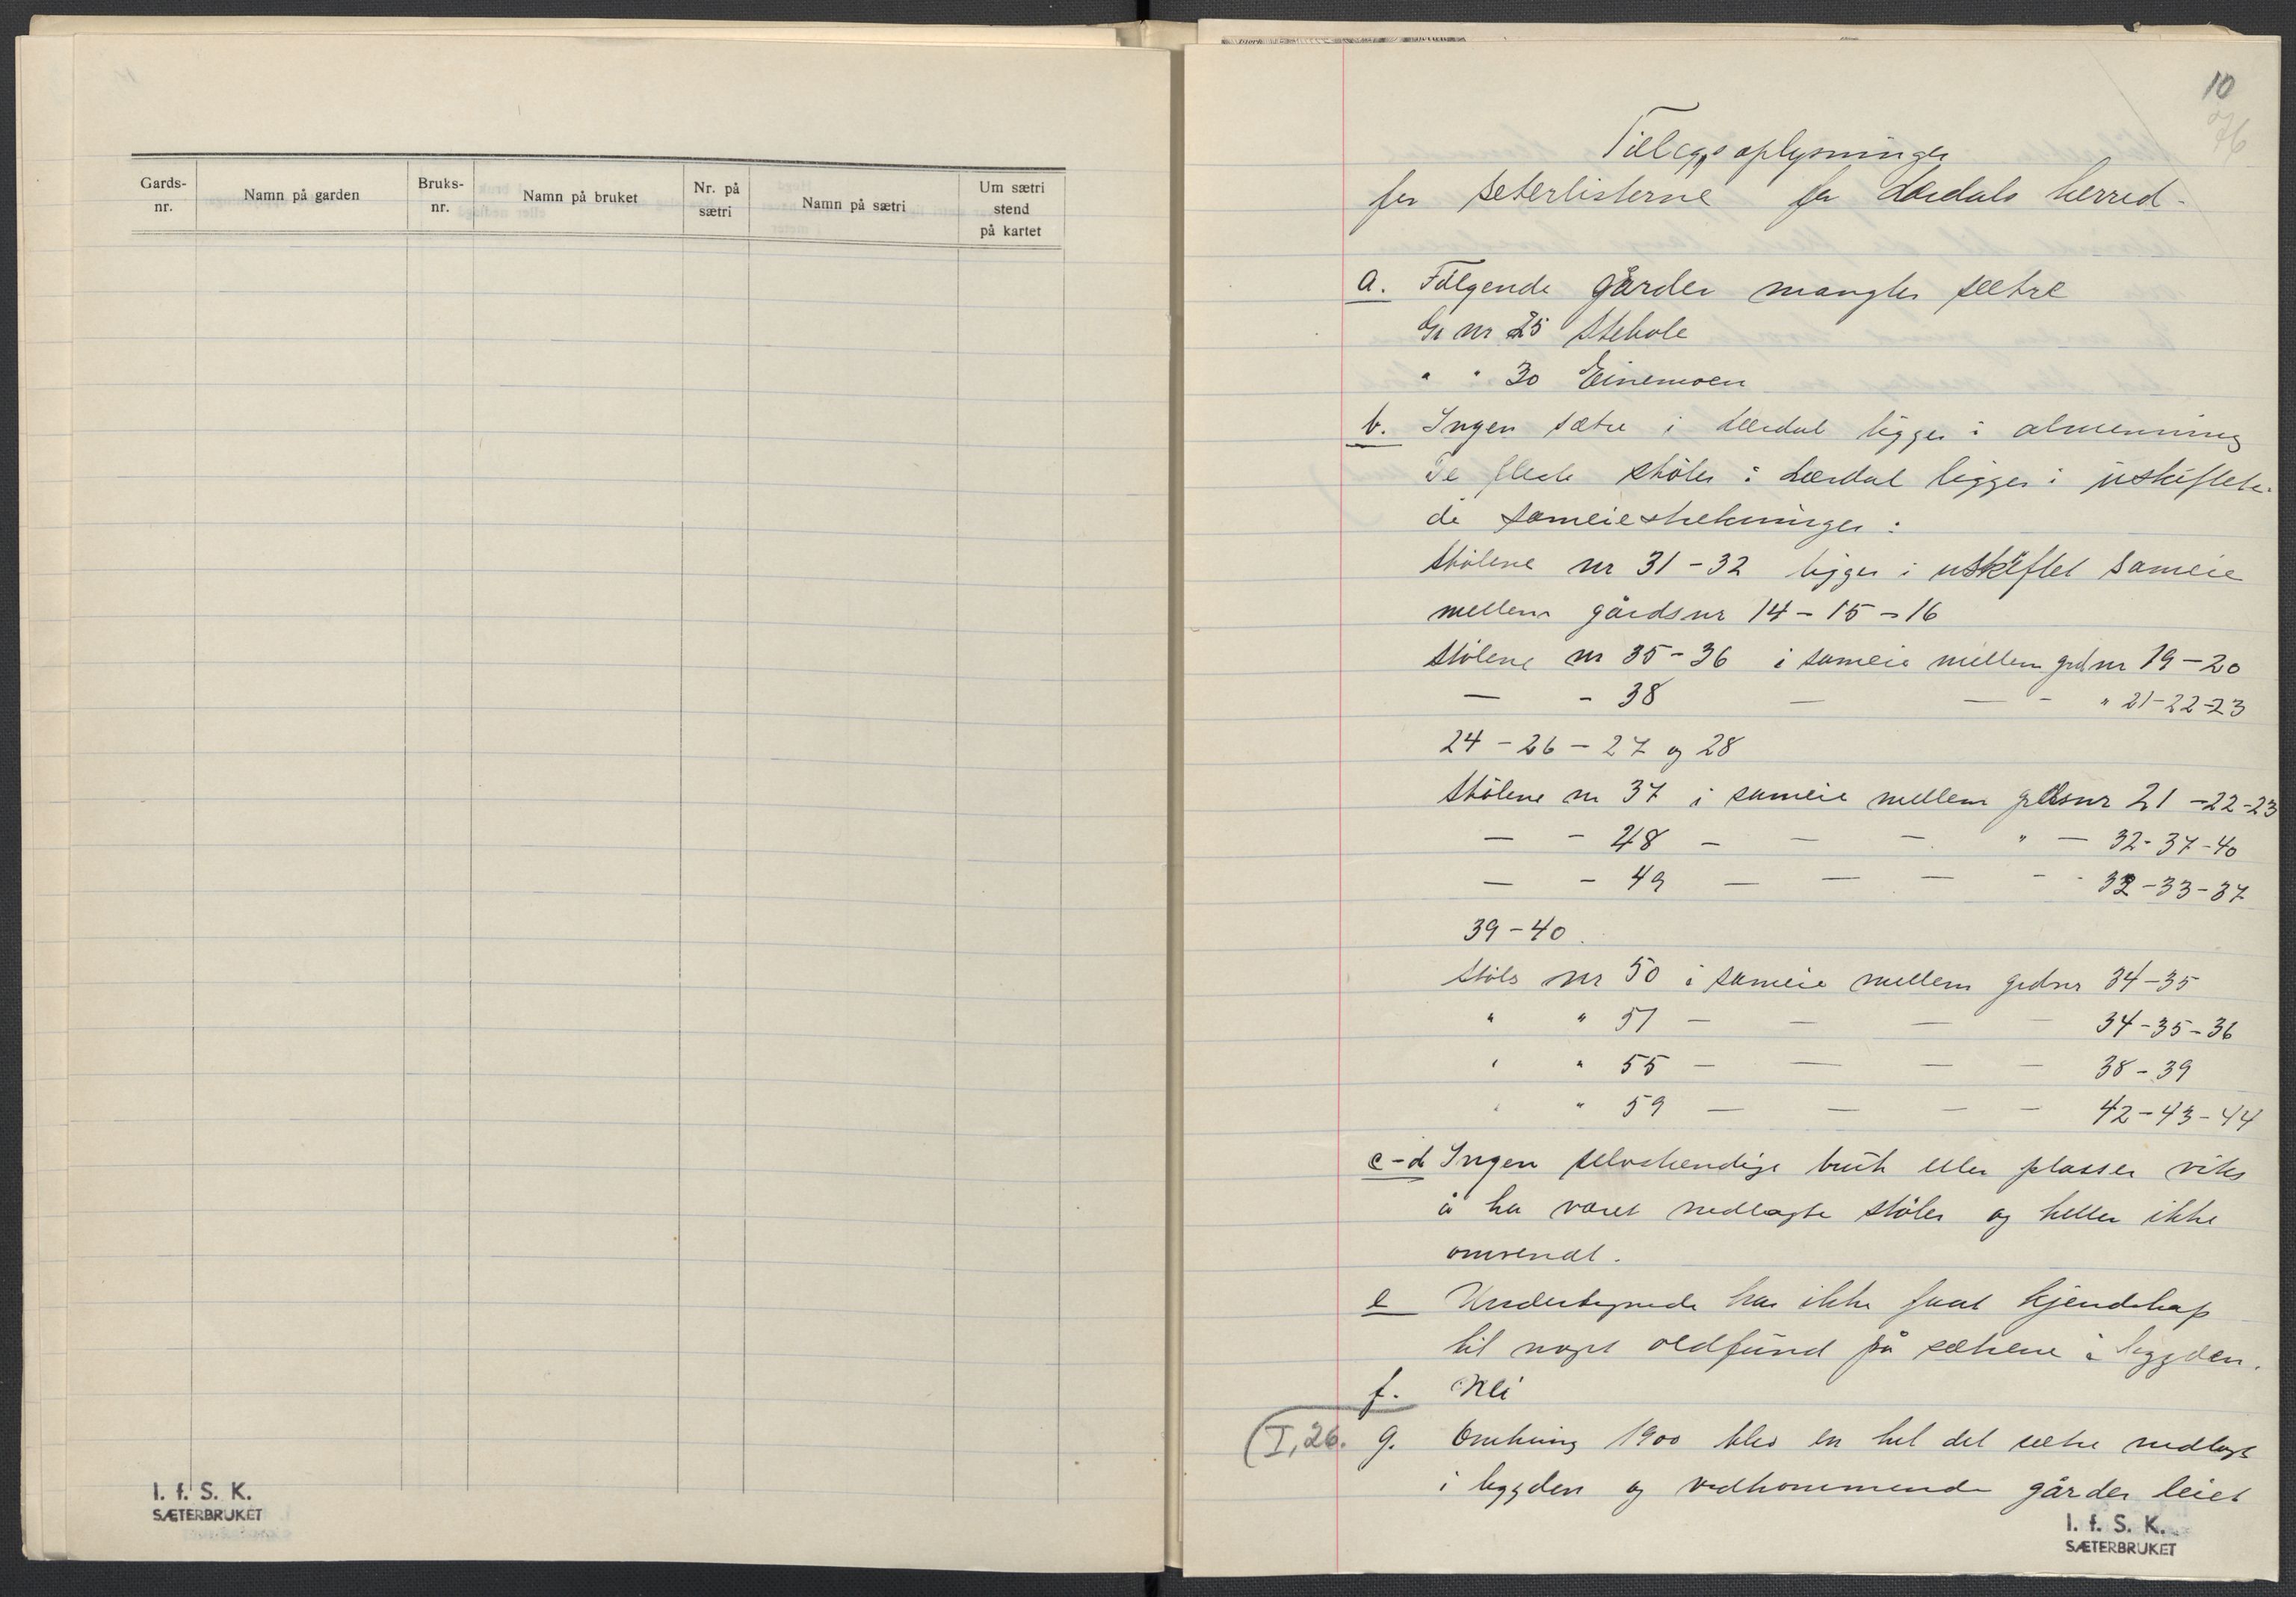 Gards-
nr.
Namn på garden
Bruks-
nr.
Namn på bruket
Nr. på
sætri
Namn på sætri
Um sætri
stend
på kartet
I. f. S. K.
SÆTERBRUKET
10
76
Tillegsoplysninger
for seterlisterne for Lærdals herred -
a. Følgende gårder mangler sætre
Gr nr 25 Stebole
" " 30 Einemoen
b. Ingen sætre i Lærdal ligger i almenning
De fleste støler i Lærdal ligger i uskiftete.
de sameiestrekninger :
Stølene nr 31 - 32 ligger i uskiftet sameie
mellem gårdsnr 14 - 15 - 16
Stølene nr 35 - 36 i sameie mellem grdnr 19 - 20
— - 38 — — - " 21-22-23
24 - 26 - 27 og 28
Stølene nr 37 i sameie mellem grdsnr 21 - 22-23
— - 48 - — - " - 32-37-40
— - 49 — — — - - 32-33-37
39 - 40.
Støls nr 50 i sameie mellem grdnr 34-35
" " 51 — — — — 34-35-36
" " 55 — — — — 38-39
" " 59 — — — — 42-43-44
c-d Ingen selvstendige bruk eller plasser vites
å ha været nedlagte støler og heller ikke
omvendt.
e Undertegnede har ikke faat kjendskap
til noget oldfund på sætrene i bygden.
f. Nei
(I, 26. g. Omkring 1900 blev en hel del sætre nedlagt
i bygden og vedkommende gårder leiet
I. f. S. K.
SÆTERBRUKET